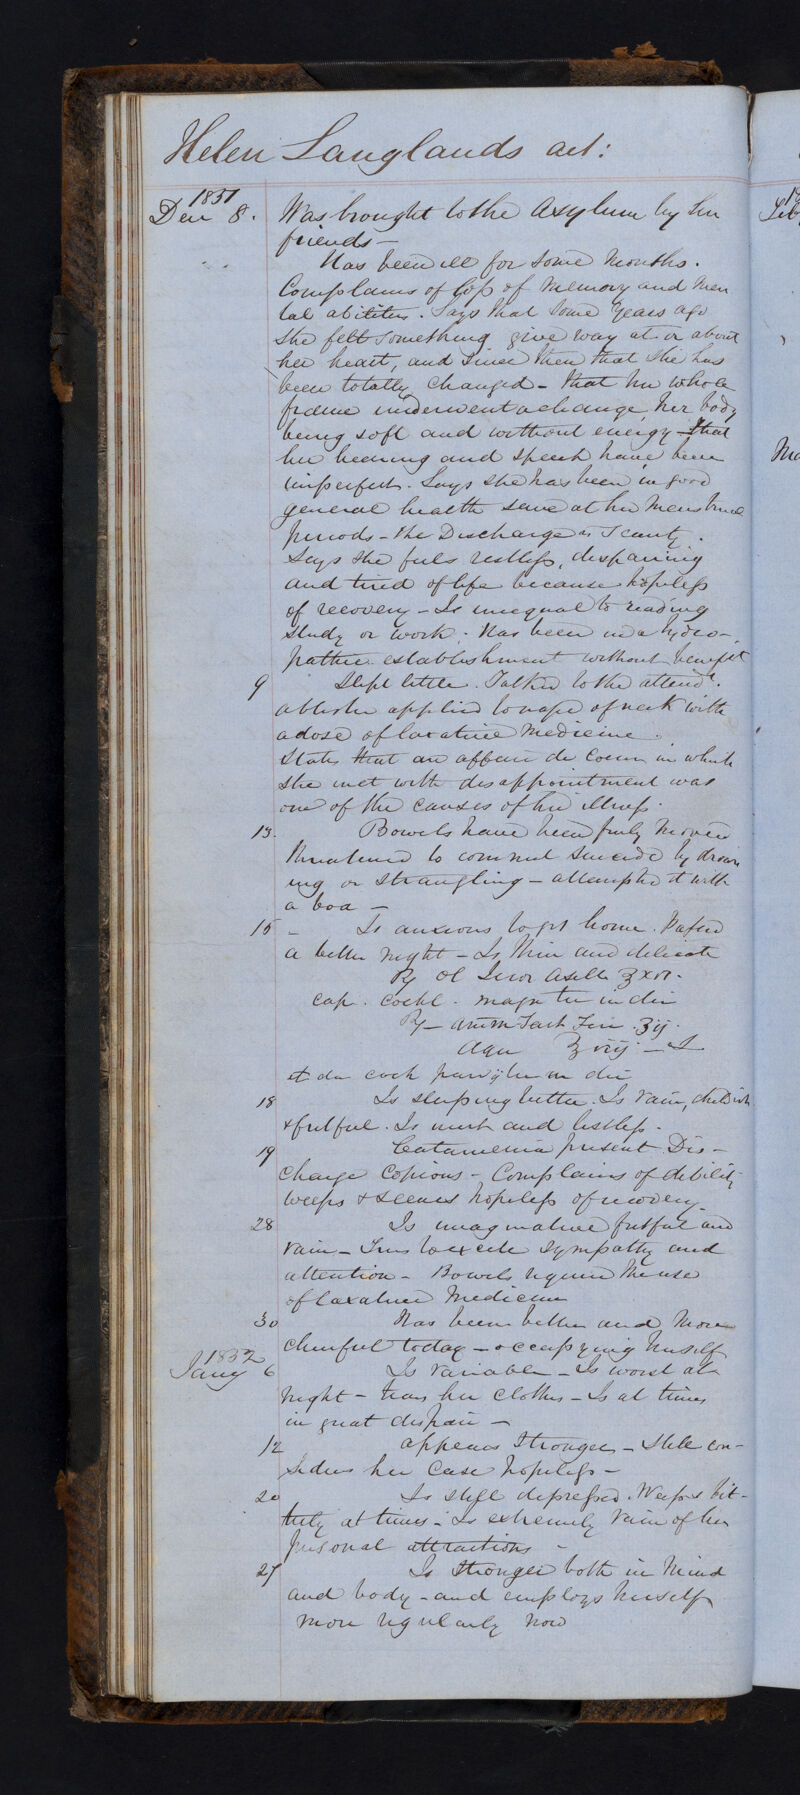 Helen Langlands aet:
1851
Dec 8. Was brought to the Asylum by her
friends –
Has been ill for some months.
Complains of loss of memory and men
tal abilities. Says that some years ago
she felt something give way at or about
her heart, and since then that she has
been totally changed – that her whole
frame underwent a change, her body
being soft and without energy – that
her hearing and speech have been
imperfect. Says she has been in good
general health save at her menstrual
periods – the Discharge is scanty.
Says she feels restless, despairing
and tired of life because hopeless
of recovery – Is unequal to reading
study or work. Has been in a hydro-
pathic establishment without benefit
9 Slept little. Talked to the attendt.
a blister applied to nape of neck with
a dose of laxative medicine.
States that an affair de coeur in which
she met with disappointment was
one of the causes of her illness.
13. Bowels have been freely moved
threatened to commit suicide by drown
ing or strangling – attempted it with
a boa –
15 – Is anxious to get home. Passed
a better night – Is thin and delicate
Rx ol Jecor Aselli ℥xvi.
cap. cochl. magn ter in die
Rx – Amm Tart Ferri. ʒij.
Aqu ℥viij –
et da coch parv ij ter in die
18 Is sleeping better. Is vain, childish
& fretful. Is inert and listless.
19 Catamenia present. Dis-
charge copious – Complains of debility
weeps & seems hopeless of recovery
28 Is imaginative fretful and
vain – Tries to excite sympathy and
attention – Bowels require the use
of laxative medicine
30 Has been better and more
cheerful today – occupying herself
1852
Jany 6 Is variable – Is worst at
night – tears her clothes – Is at times
in great despair –
12 appears stronger – Still con-
siders her case hopeless –
20 Is still depressed. Weeps bit-
terly at times – Is extremely vain of her
personal attractions –
27 Is stronger both in mind
and body – and employs herself
more regularly now
Feby
Ma